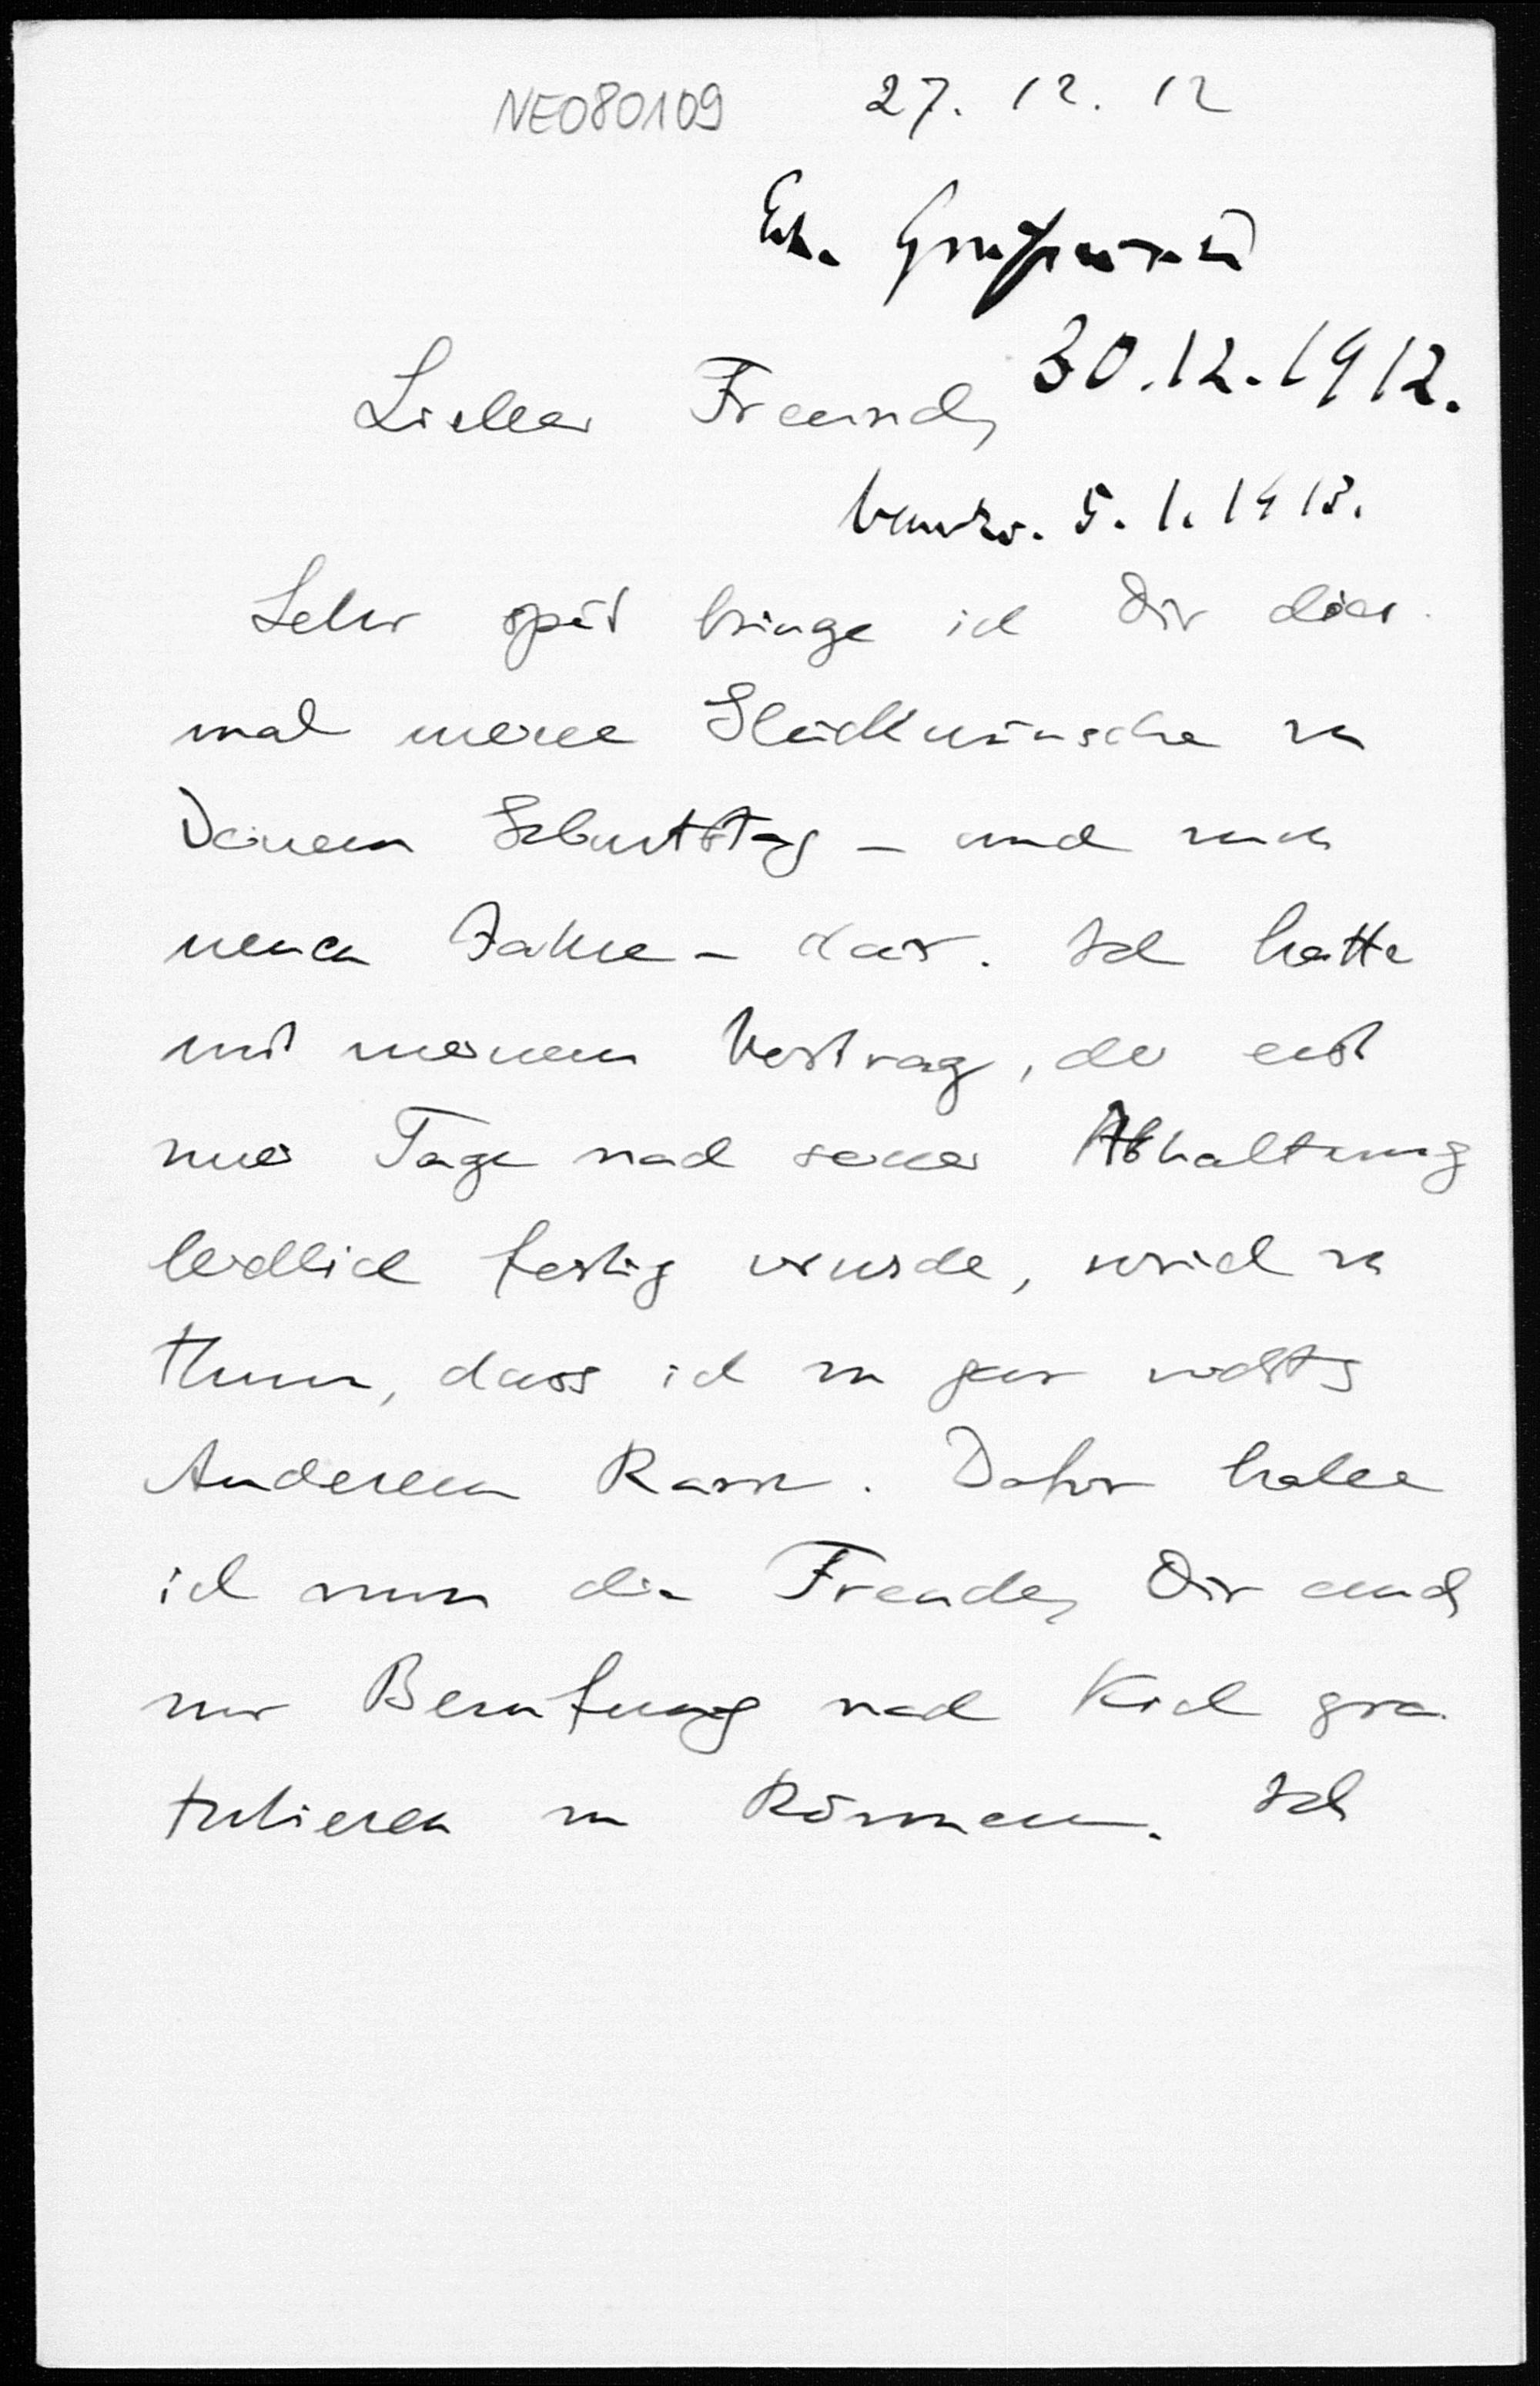 NE080109 27. 12. 12
Erh.
30.12.1912.
Lieber Freund,
beantw. 5.1.1913.
Sehr spät bringe ich Dir dies-
mal meine Glückwünsche zu
Deinem Geburtstag – und zum
neuen Jahre – dar. Ich hatte
mit meinem Vortrag, der erst
zwei Tage nach seiner Abhaltung
leidlich fertig wurde, soviel zu
thun, dass ich zu gar nichts
Anderem kam. Dafür habe
ich nun die Freude, Dir auch
zur Berufung nach Kiel gra-
tulieren zu können. Ich